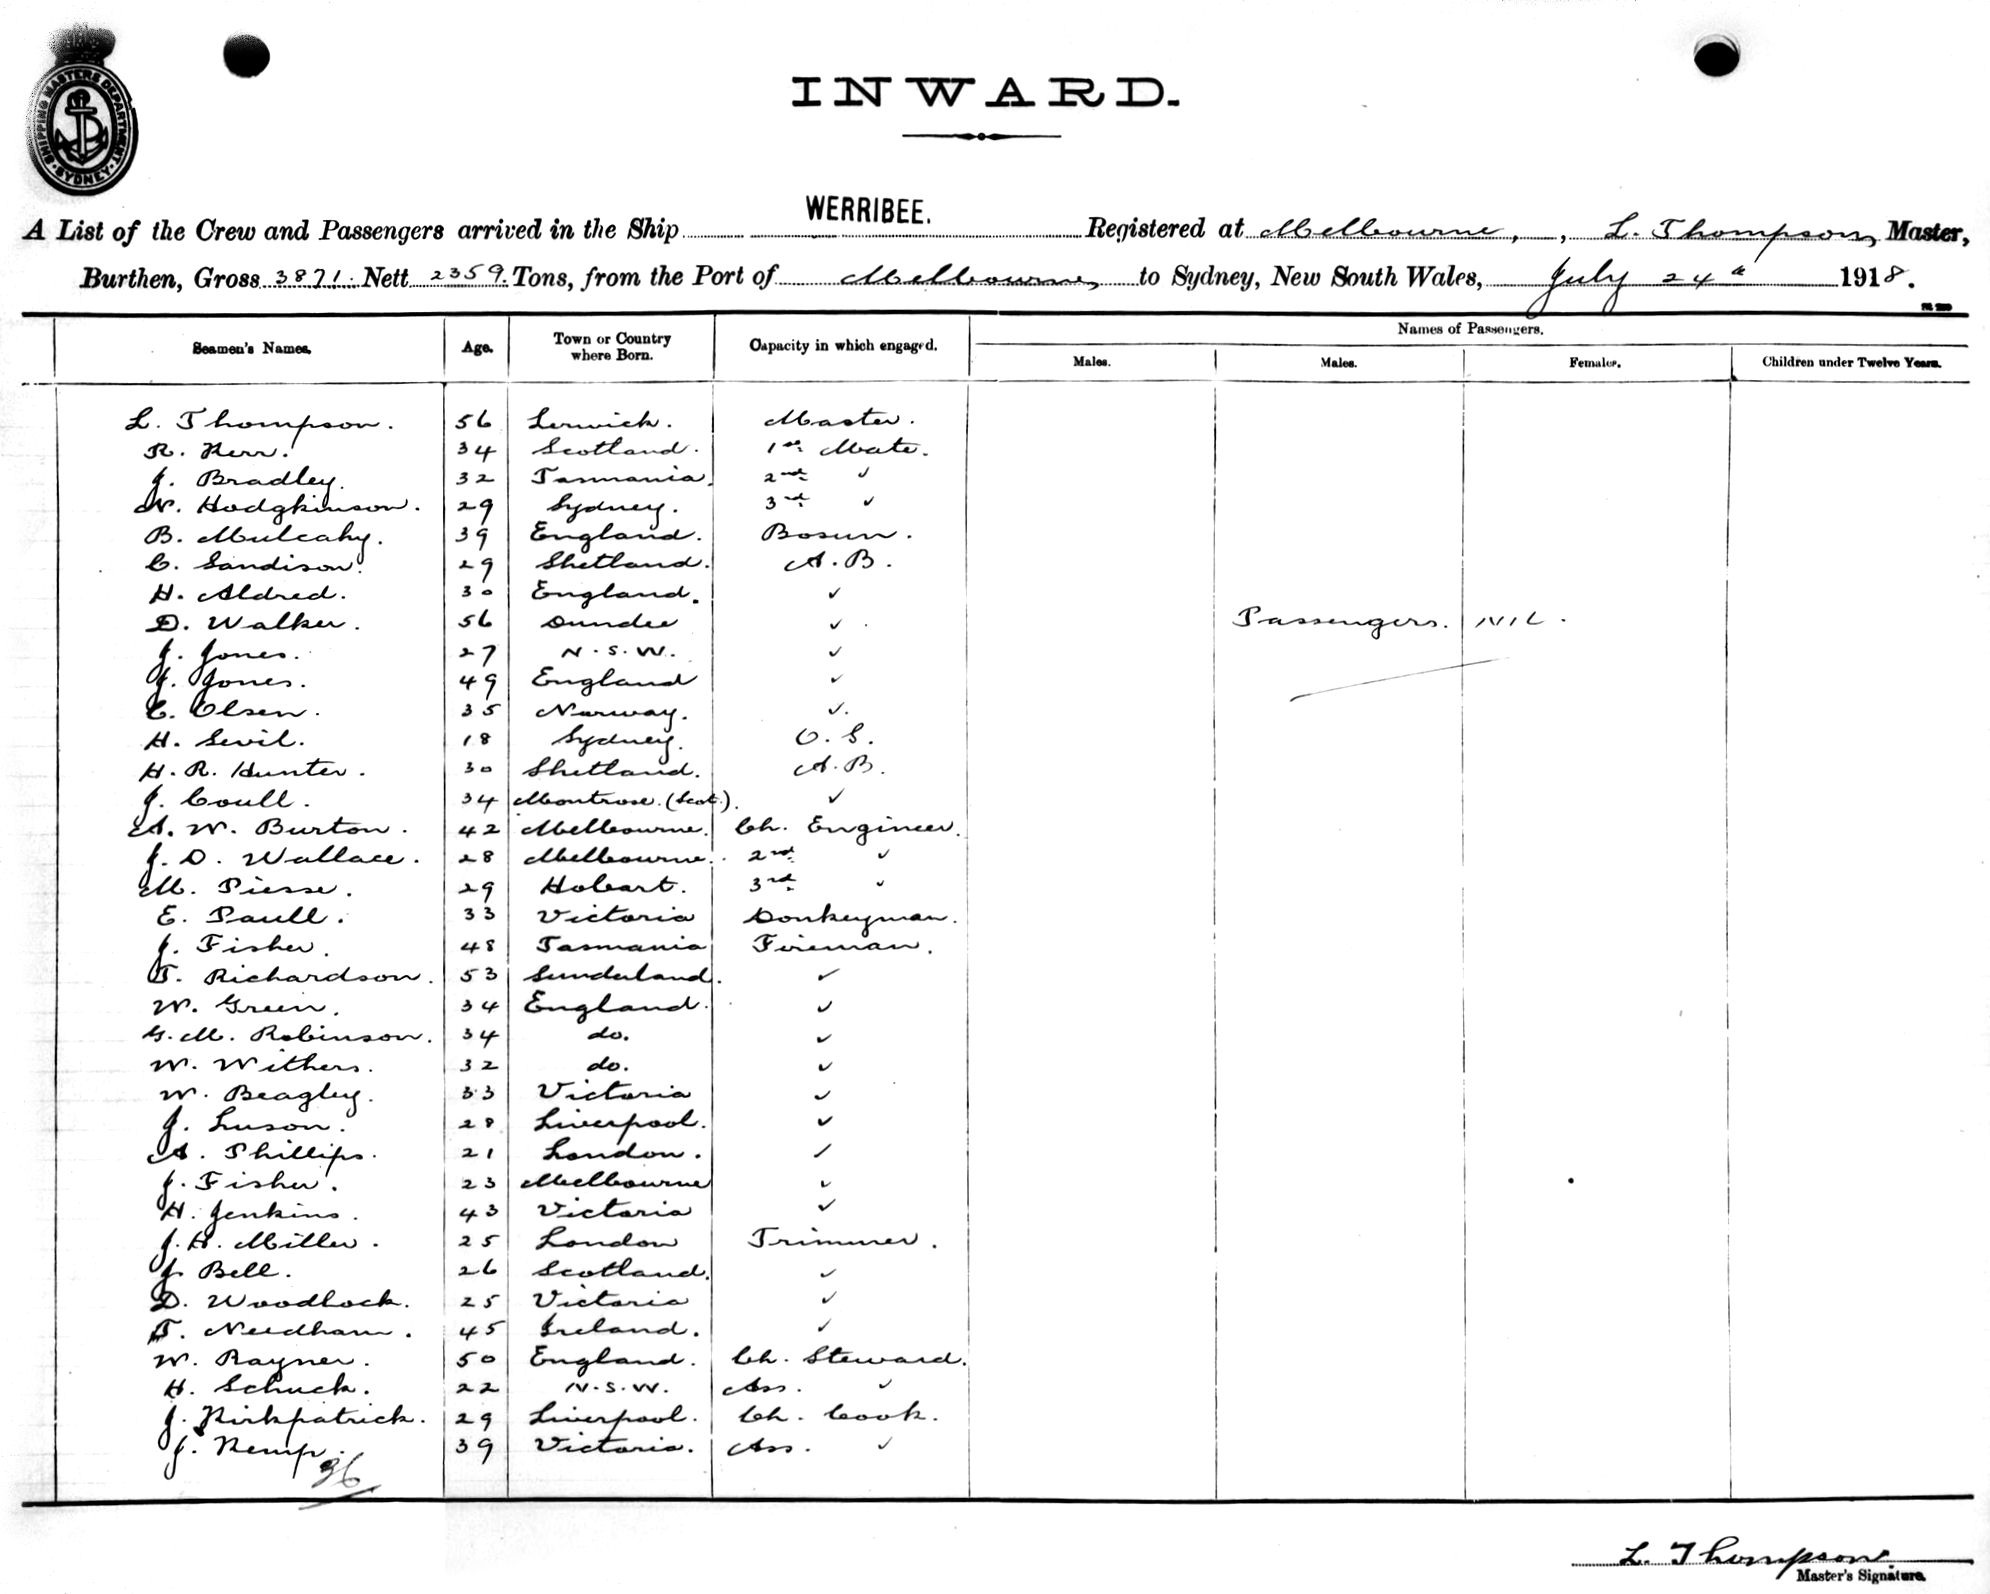 SHIPPING MASTERS DEPARTMENT
SYDNEY
INWARD.
WERRIBEE.
A List of the Crew and Passengers arrived in the Ship Registered at Melbourne, , L. Thompson, Master,
Burthen, Gross 3871. Nett 2359. Tons, from the Port of Melbourne, to Sydney, New South Wales, July 24th 1918.
Names of Passengers.
Seamen's Names. Age. Town or Country where Born. Capacity in which engaged. Males. Males. Females. Children under Twelve Years.
L. Thompson. 56 Lerwick. Master.
R. Kerr. 34 Scotland. 1st Mate.
J. Bradley. 32 Tasmania. 2nd ✓
W. Hodgkinson. 29 Sydney. 3rd ✓
B. Mulcahy. 39 England. Bosun.
C. Sandison. 29 Shetland. A.B.
H. Aldred. 30 England. ✓
D. Walker. 56 Dundee ✓ Passengers. NIL.
J. Jones. 27 N.S.W. ✓
J. Jones. 49 England ✓
C. Olsen. 35 Norway. ✓
H. Sevil. 18 Sydney. O.S.
H.R. Hunter. 30 Shetland. A.B.
J. Coull. 34 Montrose. (Scot.). ✓
A. W. Burton. 42 Melbourne. Ch. Engineer.
J. D. Wallace. 28 Melbourne. 2nd ✓
M. Piesse. 29 Hobart. 3rd ✓
E. Paull. 33 Victoria Donkeyman.
J. Fisher. 48 Tasmania Fireman.
T. Richardson. 53 Sunderland. ✓
W. Green. 34 England. ✓
G. M. Robinson. 34 do. ✓
W. Withers. 32 do. ✓
W. Beagley. 33 Victoria ✓
J. Luson. 28 Liverpool. ✓
A. Phillips. 21 London. ✓
J. Fisher. 23 Melbourne ✓
H. Jenkins. 43 Victoria ✓
J.H. Miller. 25 London Trimmer.
J. Bell. 26 Scotland. ✓
D. Woodlock. 25 Victoria ✓
T. Needham. 45 Ireland. ✓
W. Rayner. 50 England. Ch. Steward.
H. Schuck. 22 N.S.W. Ass. ✓
J. Kirkpatrick. 29 Liverpool. Ch. Cook.
J. Kemp. 39 Victoria. Ass. ✓
36
L. Thompson.
Master's Signature.